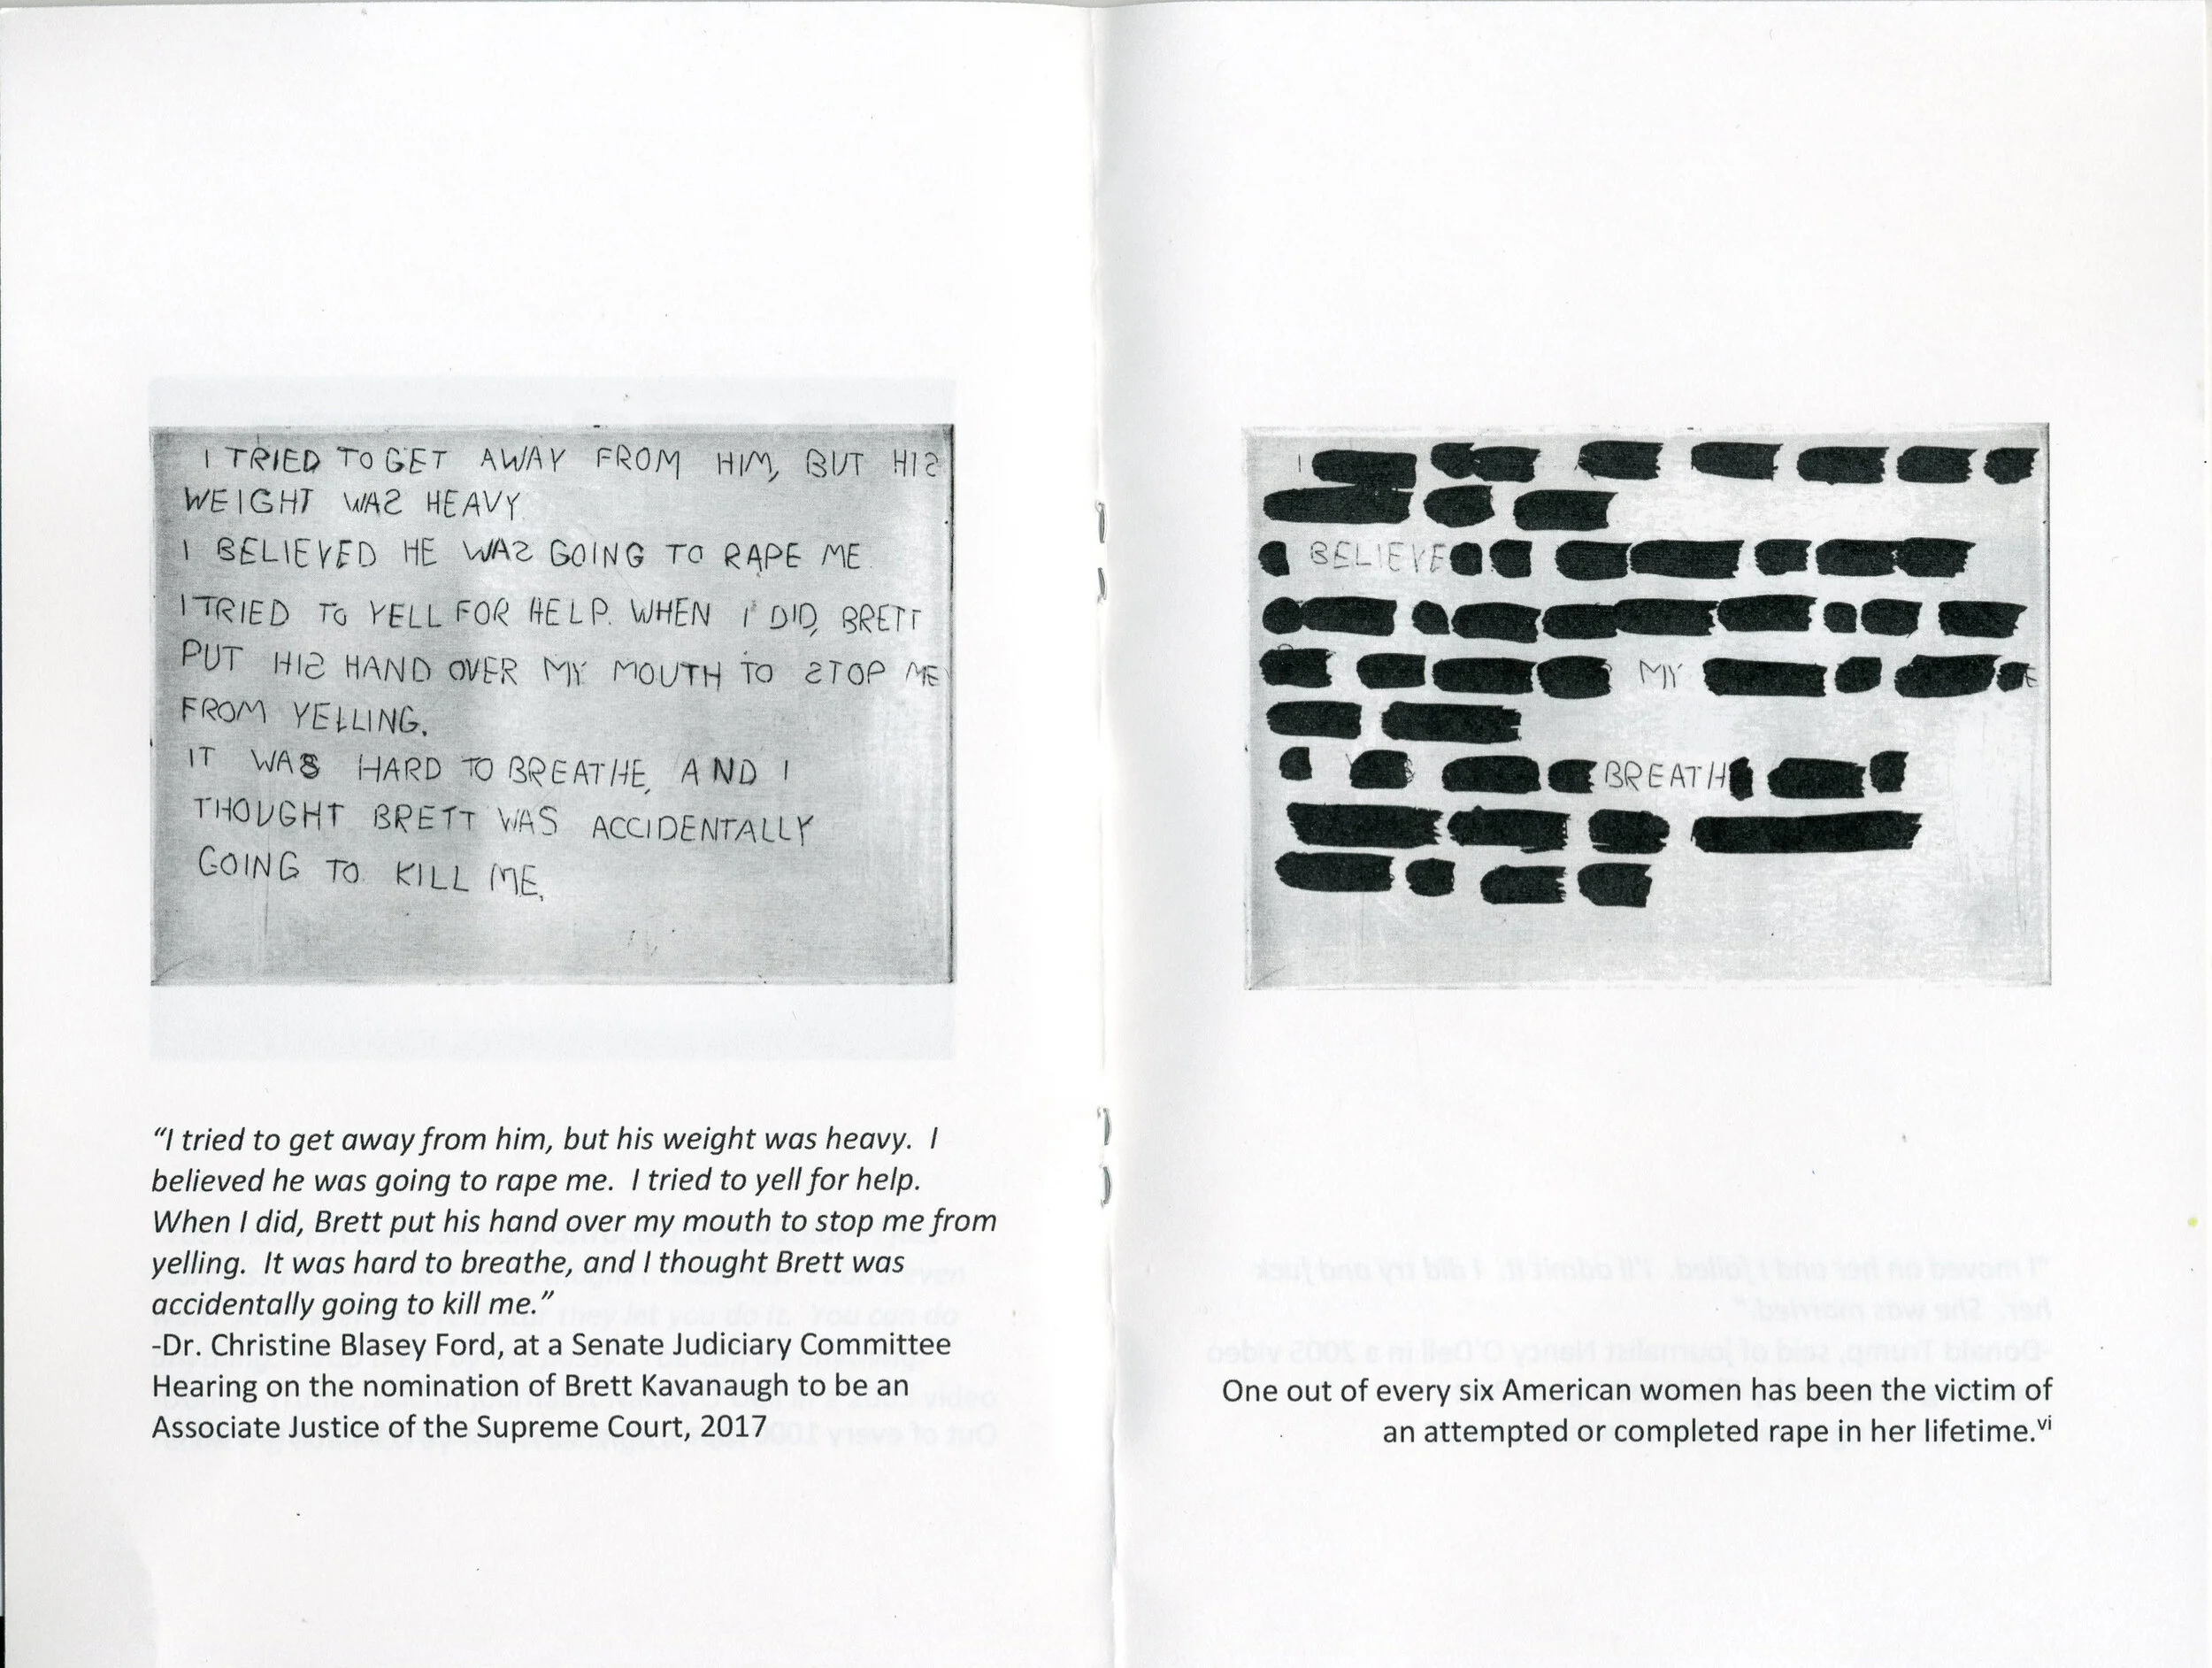 I TRIED TO GET AWAY FROM HIM, BUT HIS
WEIGHT WAS HEAVY
I BELIEVED HE WAS GOING TO RAPE ME
I TRIED TO YELL FOR HELP. WHEN I DID, BRETT
PUT HIS HAND OVER MY MOUTH TO STOP ME
FROM YELLING.
IT WAS HARD TO BREATHE, AND I
THOUGHT BRETT WAS ACCIDENTALLY
GOING TO KILL ME.
“I tried to get away from him, but his weight was heavy. I
believed he was going to rape me. I tried to yell for help.
When I did, Brett put his hand over my mouth to stop me from
yelling. It was hard to breathe, and I thought Brett was
accidentally going to kill me.”
-Dr. Christine Blasey Ford, at a Senate Judiciary Committee
Hearing on the nomination of Brett Kavanaugh to be an
Associate Justice of the Supreme Court, 2017
I
BELIEVE
MY
BREATH
"I moved on her and I failed. I'll admit it. I did try and fuck
her. She was married."
-Donald Trump, said of journalist Nancy O'Dell in a 2005 video
One out of every six American women has been the victim of
an attempted or completed rape in her lifetime.vi